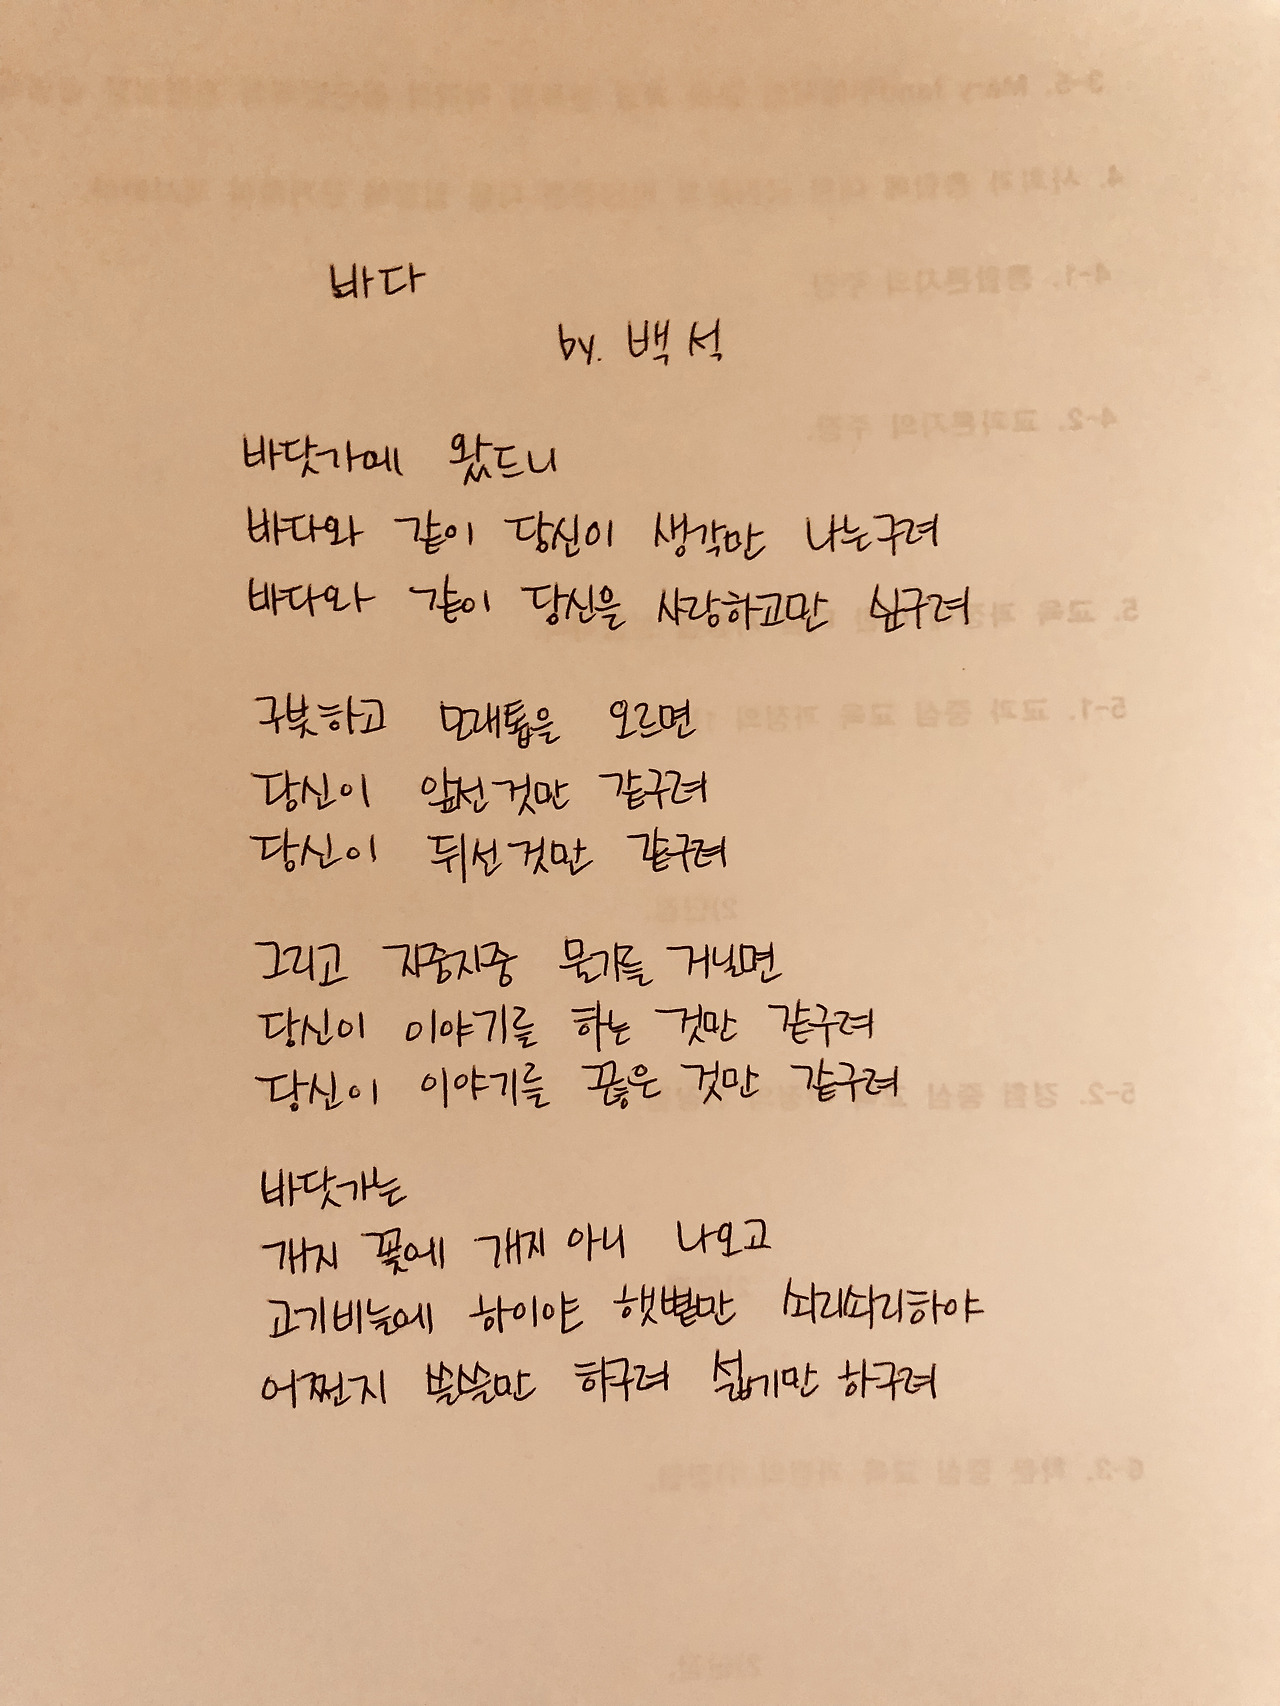 바다
by. 백석
바닷가에 왔드니
바다와 같이 당신이 생각만 나는구려
바다와 같이 당신을 사랑하고만 싶구려
구붓하고 모래톱을 오르면
당신이 앞선 것만 같구려
당신이 뒤선 것만 같구려
그리고 지중지중 물가를 거닐면
당신이 이야기를 하는 것만 같구려
당신이 이야기를 끊은 것만 같구려
바닷가는
개지 꽃에 개지 아니 나오고
고기비늘에 하이얀 햇볕만 쇠리쇠리하야
어쩐지 쓸쓸만 하구려 섧기만 하구려